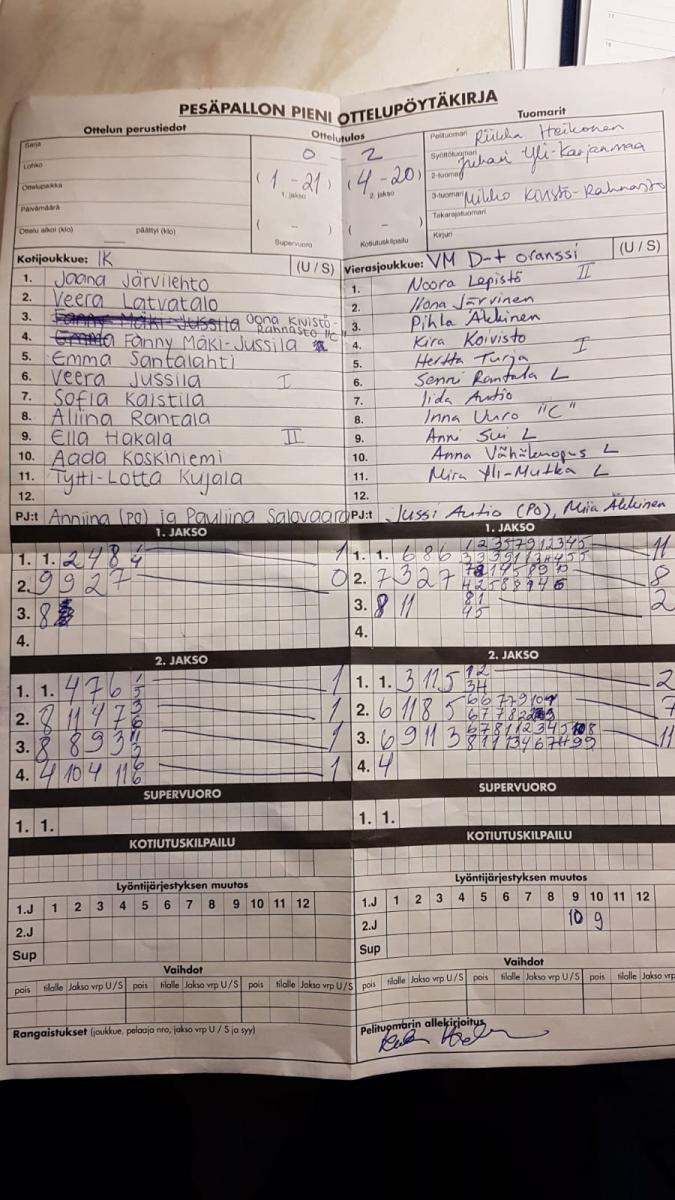 PESÄPALLON PIENI OTTELUPÖYTÄKIRJA
Ottelun perustiedot
Ottelutulos
Tuomarit
Sarja
Lohko
Ottelupaikka
Päivämäärä
Ottelu alkoi (klo) päättyi (klo)
0 - 2
(1 - 21) (4 - 20)
1. jakso 2. jakso
( - ) ( - )
Supervuoro Kotiutuskilpailu
Pelituomari Riikka Heikonen
Syöttötuomari Juhani Yli-Karjanmaa
2-tuomari
3-tuomari Mikko Kivistö-Rahnasto
Takarajatuomari
Kirjuri
Kotijoukkue: IK (U / S)
1. Jaana Järvilehto
2. Veera Latvatalo
3. Fanny Mäki-Jussila Oona Kivistö-Rahnasto "C"
4. Emma Fanny Mäki-Jussila
5. Emma Santalahti
6. Veera Jussila I
7. Sofia Kaistila
8. Aliina Rantala
9. Ella Hakala II
10. Aada Koskiniemi
11. Tytti-Lotta Kujala
12.
PJ:t Anniina (PO) ja Pauliina Salovaara
Vierasjoukkue: VM D-t oranssi (U / S)
1. Noora Lepistö II
2. Ilona Järvinen
3. Pihla Äkkinen
4. Kira Koivisto
5. Hertta Turja I
6. Senni Rantala L
7. Iida Autio
8. Inna Uuro "C"
9. Anni Sui L
10. Anna Vähäknopus L
11. Mira Yli-Mutka L
12.
PJ:t Jussi Autio (PO), Miia Äkkinen
1. JAKSO
1. 1. 2 4 8 1
2. 9 9 2 7 0
3. 8
4.
1. JAKSO
1. 1. 6 8 6 11
2. 7 3 2 7 8
3. 8 11 81 45 2
4.
2. JAKSO
1. 1. 4 7 6 1
2. 8 11 4 7 1
3. 8 8 9 3 1
4. 4 10 4 11 1
2. JAKSO
1. 1. 3 11 5 12 34 2
2. 6 11 8 5 7
3. 6 9 11 3 11
4. 4
SUPERVUORO
1. 1.
SUPERVUORO
1. 1.
KOTIUTUSKILPAILU
KOTIUTUSKILPAILU
Lyöntijärjestyksen muutos
1.J 1 2 3 4 5 6 7 8 9 10 11 12
2.J
Sup
Lyöntijärjestyksen muutos
1.J 1 2 3 4 5 6 7 8 9 10 11 12
2.J 10 9
Sup
Vaihdot
pois tilalle Jakso vrp U/S pois tilalle Jakso vrp U/S pois tilalle Jakso vrp U/S
Vaihdot
pois tilalle Jakso vrp U/S pois tilalle Jakso vrp U/S pois tilalle Jakso vrp
Rangaistukset (joukkue, pelaaja nro, jakso vrp U / S ja syy)
Pelituomarin allekirjoitus